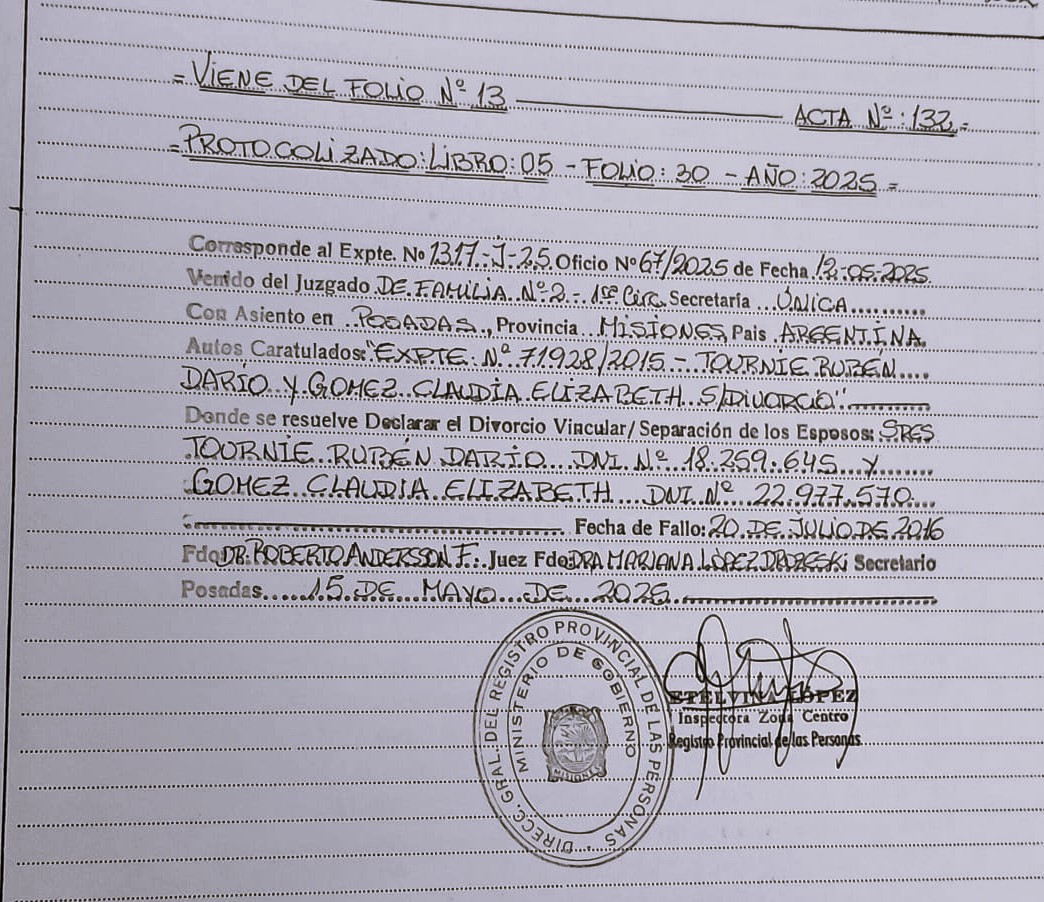 = VIENE DEL FOLIO Nº 13 ACTA Nº: 132 =
= PROTOCOLIZADO: LIBRO: 05 - FOLIO: 30 - AÑO: 2025 =
Corresponde al Expte. No 1317-J-25 Oficio Nº 67/2025 de Fecha 12-05-2025
Venido del Juzgado DE FAMILIA Nº 2 - 1ra Circ. Secretaría ÚNICA
Con Asiento en POSADAS, Provincia MISIONES País ARGENTINA
Autos Caratulados: "EXPTE Nº 71928/2015 - TOURNIE RUBEN
DARÍO Y GOMEZ CLAUDIA ELIZABETH S/DIVORCIO"
Donde se resuelve Declarar el Divorcio Vincular/ Separación de los Esposos: SRES
TOURNIE RUBÉN DARÍO DNI Nº 18.259.645 Y
GOMEZ CLAUDIA ELIZABETH DNI Nº 22.977.570
Fecha de Fallo: 20 DE JULIO DE 2016
Fdo DR. ROBERTO ANDERSSON F. Juez Fdo DRA MARIANA LÓPEZ Secretario
Posadas 15 DE MAYO DE 2025
DIRECC. GRAL. DEL REGISTRO PROVINCIAL DE LAS PERSONAS
MINISTERIO DE GOBIERNO
MISIONES
ETELVINA LÓPEZ
Inspectora Zona Centro
Registro Provincial de las Personas